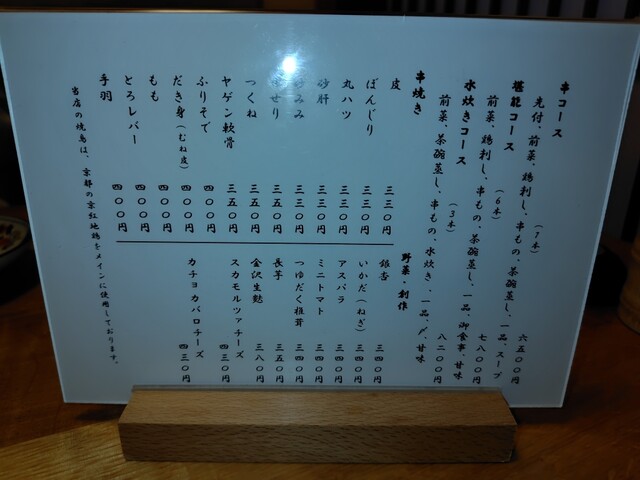 串コース
先付、前菜、鶏刺し、串もの、茶碗蒸し、一品、スープ
(7本)
六五〇〇円
堪能コース
前菜、鶏刺し、串もの、茶碗蒸し、一品、御食事、甘味
(6本)
七八〇〇円
水炊きコース
前菜、茶碗蒸し、串もの、水炊き、一品、〆、甘味
(3本)
八二〇〇円
串焼き
皮 三三〇円
ぼんじり 三三〇円
丸ハツ 三三〇円
砂肝 三三〇円
みみ 三三〇円
せせり 三五〇円
つくね 三五〇円
ヤゲン軟骨 三五〇円
ふりそで 四〇〇円
だき身(むね皮) 四〇〇円
もも 四〇〇円
とろレバー 四〇〇円
手羽 四〇〇円
野菜・創作
銀杏 三四〇円
いかだ(ねぎ) 三四〇円
アスパラ 三四〇円
ミニトマト 三四〇円
つゆだく椎茸 三四〇円
長芋 三五〇円
金沢生麩 三八〇円
スカモルツァチーズ 四三〇円
カチョカバロチーズ 四三〇円
当店の焼鳥は、京都の京紅地鶏をメインに使用しております。